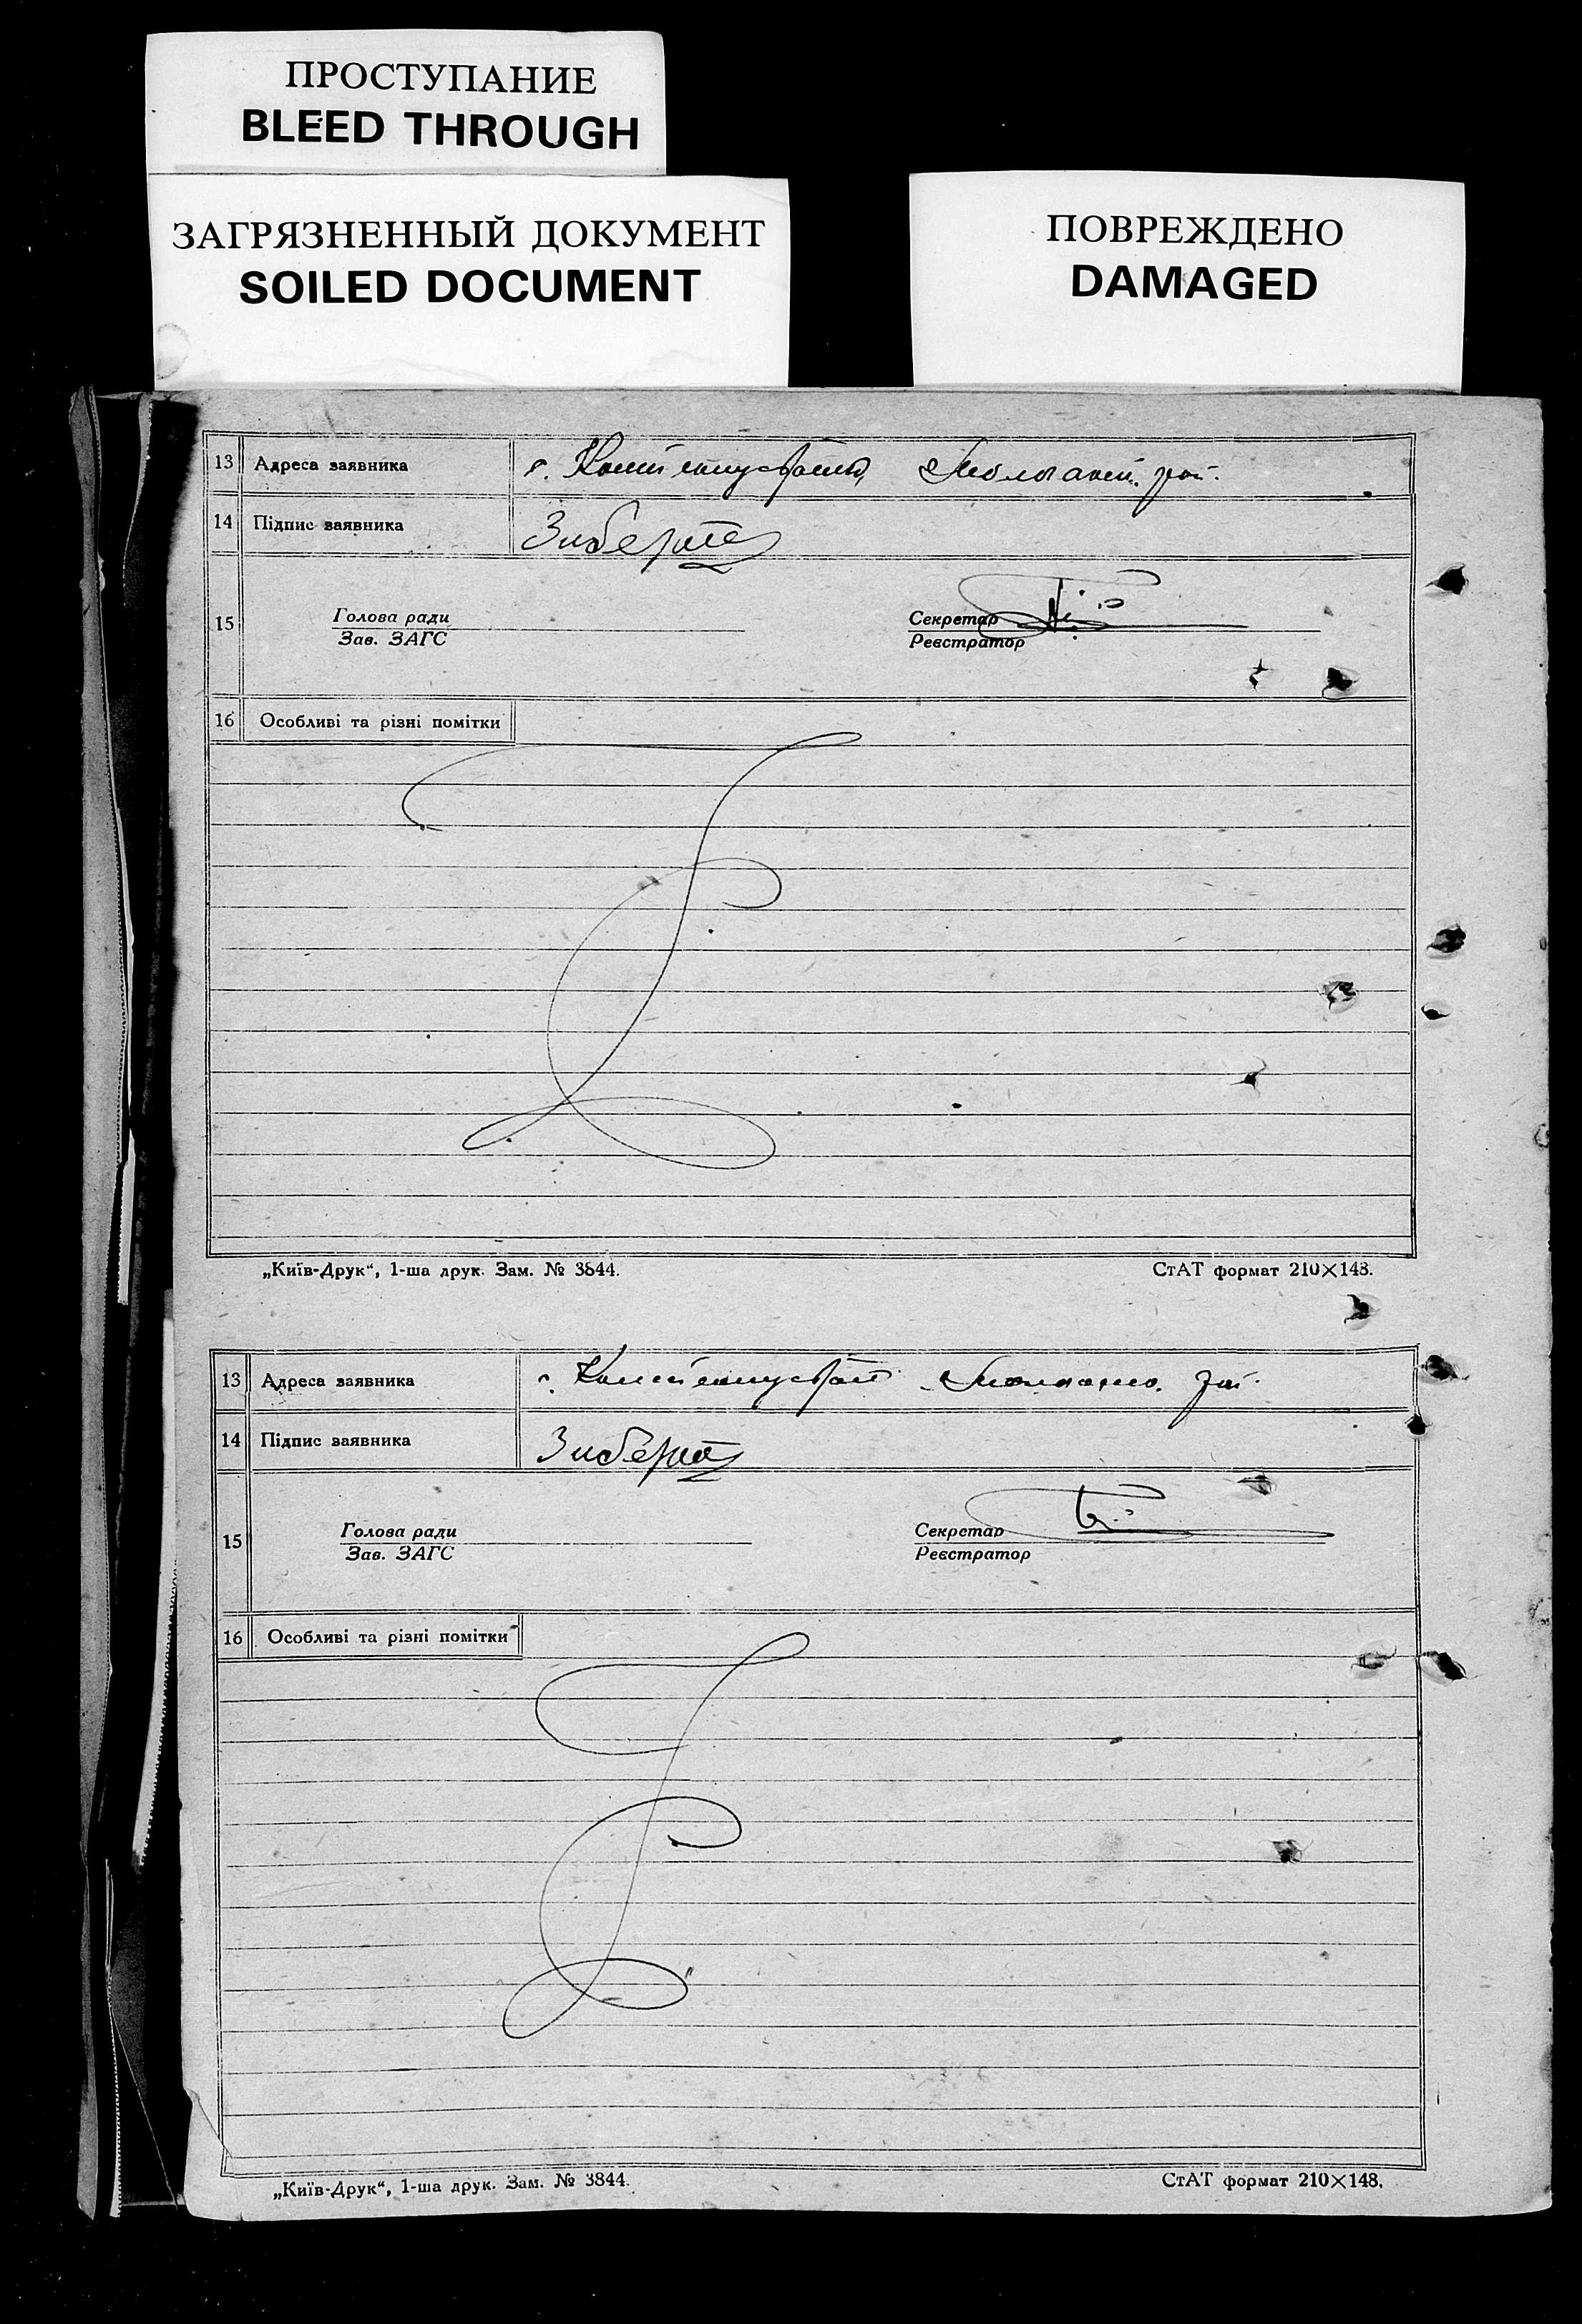 ПРОСТУПАНИЕ
BLEED THROUGH
ЗАГРЯЗНЕННЫЙ ДОКУМЕНТ
SOILED DOCUMENT
ПОВРЕЖДЕНО
DAMAGED
13 Адреса заявника
14 Підпис заявника Зиберт
15 Голова ради Секретар
Зав. ЗАГС Реєстратор
16 Особливі та різні помітки
„Київ-Друк“, 1-ша друк. Зам. № 3844. СтАТ формат 210×148.
13 Адреса заявника
14 Підпис заявника Зиберт
15 Голова ради Секретар
Зав. ЗАГС Реєстратор
16 Особливі та різні помітки
„Київ-Друк“, 1-ша друк. Зам. № 3844. СтАТ формат 210×148.